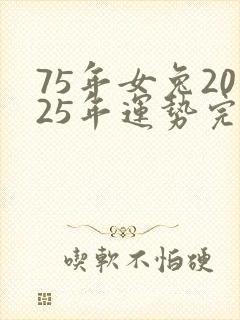 75年女兔20
25年運勢完
喫軟不怕硬